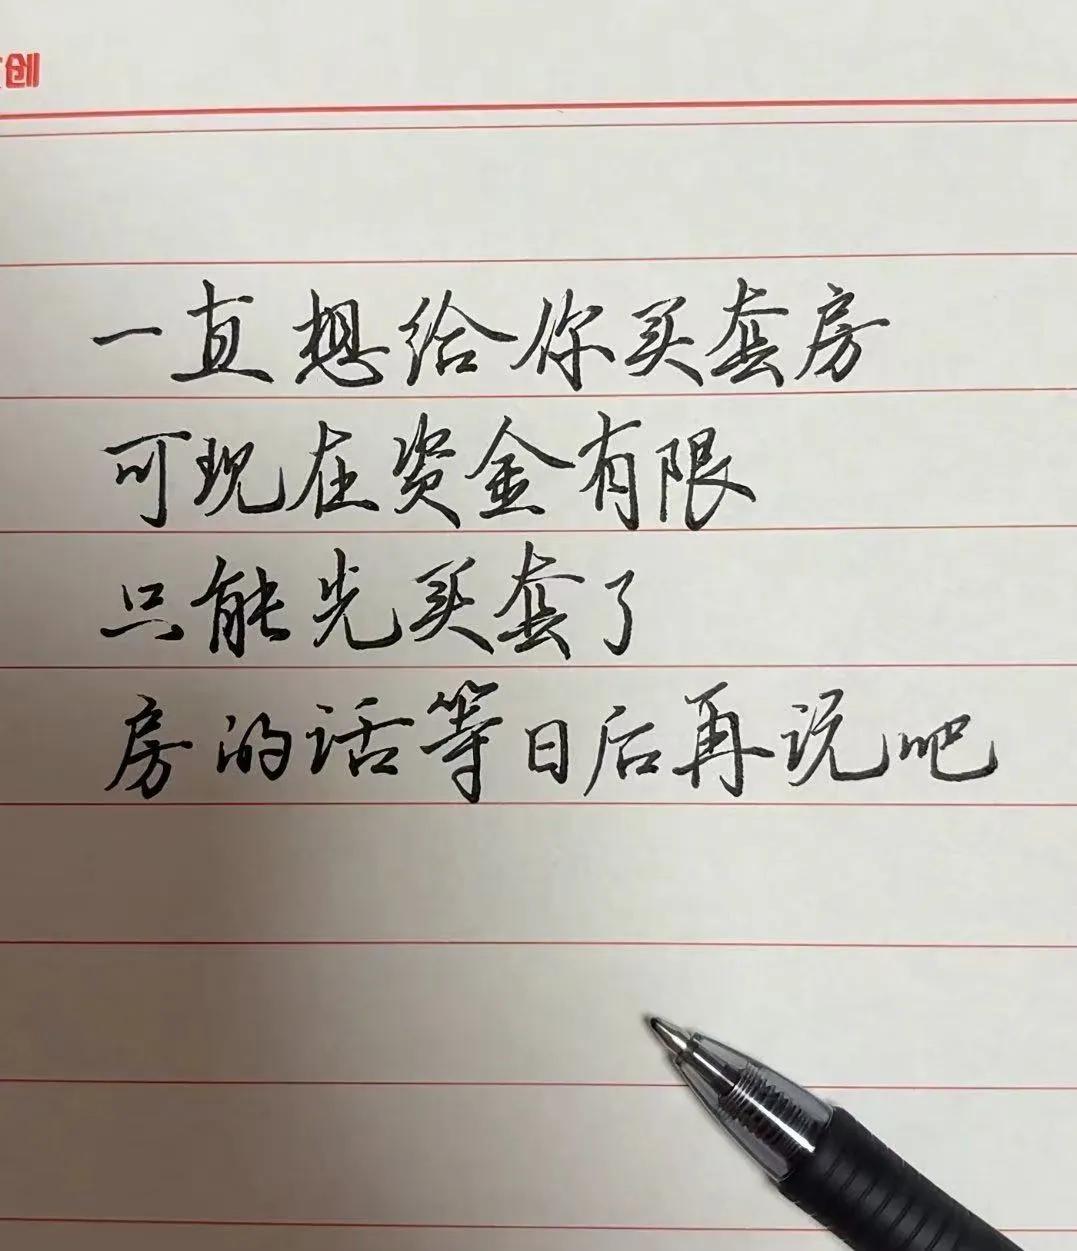 创
一直想给你买套房
可现在资金有限
只能先买套了
房的话等日后再说吧